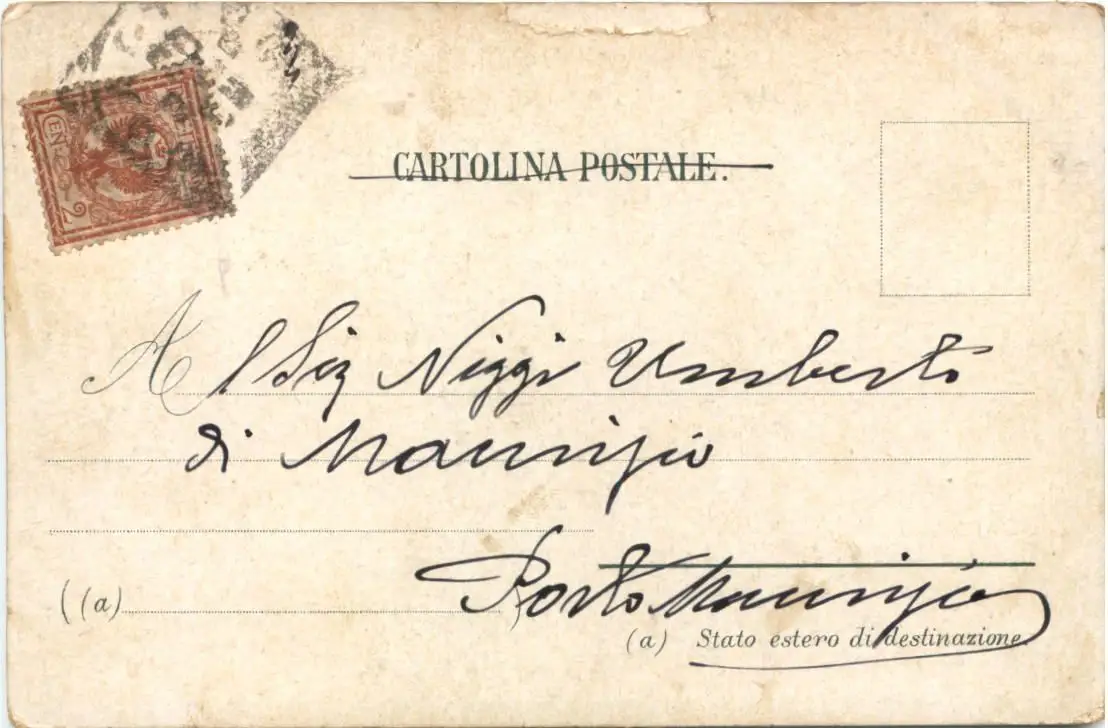 CEN. 2
CARTOLINA POSTALE.
Al Sig Niggi Umberto
di Maurizio
Porto Maurizio
(a)
(a) Stato estero di destinazione.